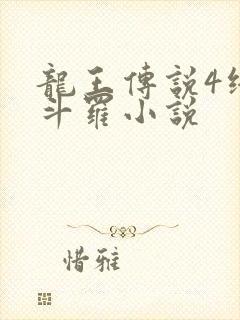 龍王傳說4終
斗羅小說
惜雅